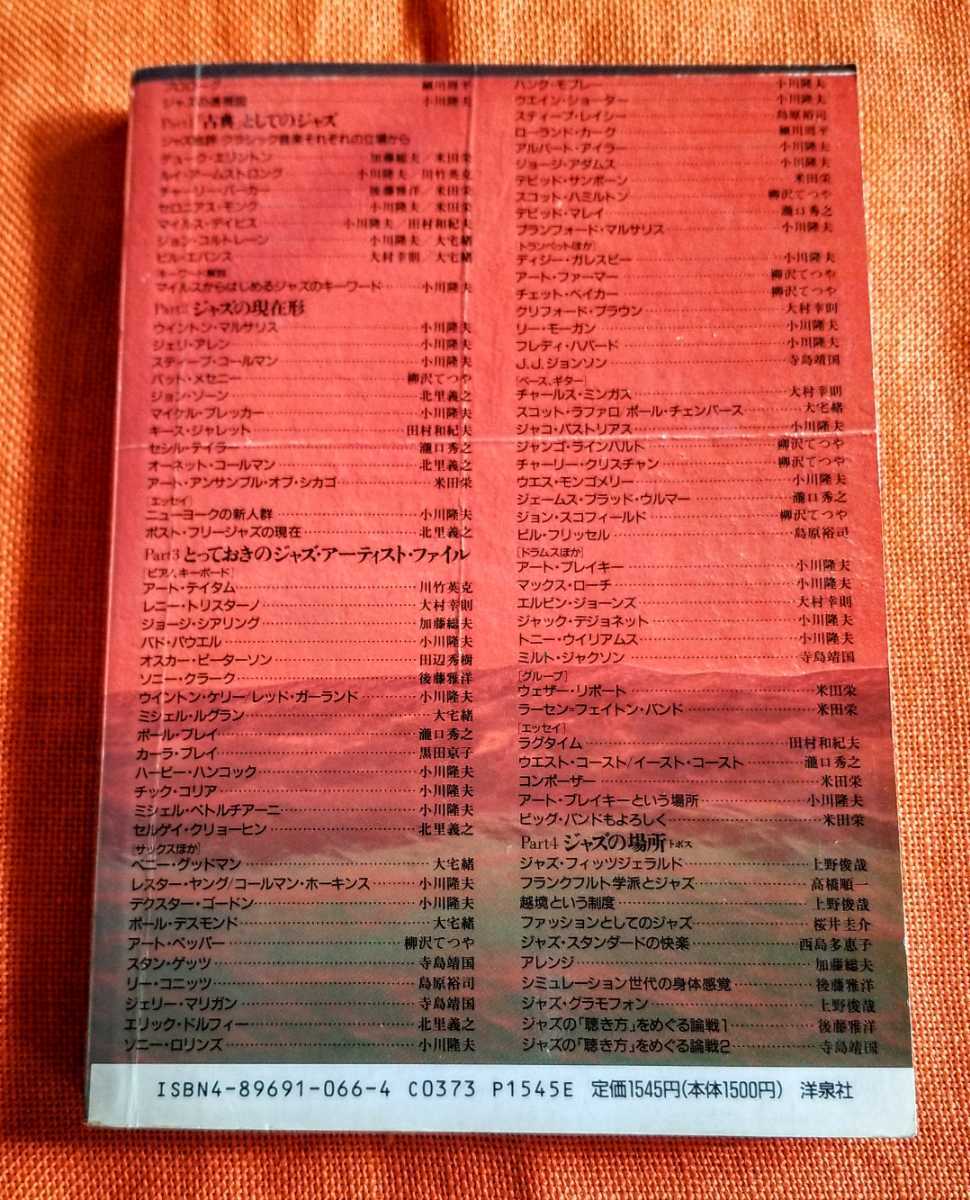 プロローグ……細川周平
ジャズの透視図……小川隆夫
Part1「古典」としてのジャズ
ジャズ批評/クラシック音楽それぞれの立場から
デューク・エリントン……加藤総夫/米田栄
ルイ・アームストロング……小川隆夫/川竹英克
チャーリー・パーカー……後藤雅洋/米田栄
セロニアス・モンク……小川隆夫/米田栄
マイルス・デイビス……小川隆夫/田村和紀夫
ジョン・コルトレーン……小川隆夫/大宅緒
ビル・エバンス……大村幸則/大宅緒
キーワード解説
マイルスからはじめるジャズのキーワード……小川隆夫
Part2 ジャズの現在形
ウイントン・マルサリス……小川隆夫
ジェリ・アレン……小川隆夫
スティーブ・コールマン……小川隆夫
パット・メセニー……柳沢てつや
ジョン・ゾーン……北里義之
マイケル・ブレッカー……小川隆夫
キース・ジャレット……田村和紀夫
セシル・テイラー……瀧口秀之
オーネット・コールマン……北里義之
アート・アンサンブル・オブ・シカゴ……米田栄
[エッセイ]
ニューヨークの新人群……小川隆夫
ポスト・フリージャズの現在……北里義之
Part3 とっておきのジャズ・アーティスト・ファイル
[ピアノ、キーボード]
アート・テイタム……川竹英克
レニー・トリスターノ……大村幸則
ジョージ・シアリング……加藤総夫
バド・パウエル……小川隆夫
オスカー・ピーターソン……田辺秀樹
ソニー・クラーク……後藤雅洋
ウイントン・ケリー/レッド・ガーランド……小川隆夫
ミシェル・ルグラン……大宅緒
ポール・ブレイ……瀧口秀之
カーラ・ブレイ……黒田京子
ハービー・ハンコック……小川隆夫
チック・コリア……小川隆夫
ミシェル・ペトルチアーニ……小川隆夫
セルゲイ・クリョーヒン……北里義之
[サックスほか]
ベニー・グッドマン……大宅緒
レスター・ヤング/コールマン・ホーキンス……小川隆夫
デクスター・ゴードン……小川隆夫
ポール・デスモンド……大宅緒
アート・ペッパー……柳沢てつや
スタン・ゲッツ……寺島靖国
リー・コニッツ……島原裕司
ジェリー・マリガン……寺島靖国
エリック・ドルフィー……北里義之
ソニー・ロリンズ……小川隆夫
ハンク・モブレー……小川隆夫
ウエイン・ショーター……小川隆夫
スティーブ・レイシー……島原裕司
ローランド・カーク……細川周平
アルバート・アイラー……小川隆夫
ジョージ・アダムス……小川隆夫
デビッド・サンボーン……米田栄
スコット・ハミルトン……柳沢てつや
デビッド・マレイ……瀧口秀之
ブランフォード・マルサリス……小川隆夫
[トランペットほか]
ディジー・ガレスピー……小川隆夫
アート・ファーマー……柳沢てつや
チェット・ベイカー……柳沢てつや
クリフォード・ブラウン……大村幸則
リー・モーガン……小川隆夫
フレディ・ハバード……小川隆夫
J.J.ジョンソン……寺島靖国
[ベース、ギター]
チャールス・ミンガス……大村幸則
スコット・ラファロ/ポール・チェンバース……大宅緒
ジャコ・パストリアス……小川隆夫
ジャンゴ・ラインハルト……柳沢てつや
チャーリー・クリスチャン……柳沢てつや
ウエス・モンゴメリー……小川隆夫
ジェームス・ブラッド・ウルマー……瀧口秀之
ジョン・スコフィールド……柳沢てつや
ビル・フリッセル……島原裕司
[ドラムスほか]
アート・ブレイキー……小川隆夫
マックス・ローチ……小川隆夫
エルビン・ジョーンズ……大村幸則
ジャック・デジョネット……小川隆夫
トニー・ウイリアムス……小川隆夫
ミルト・ジャクソン……寺島靖国
[グループ]
ウェザー・リポート……米田栄
ラーセン=フェイトン・バンド……米田栄
[エッセイ]
ラグタイム……田村和紀夫
ウエスト・コースト/イースト・コースト……瀧口秀之
コンポーザー……米田栄
アート・ブレイキーという場所……小川隆夫
ビッグ・バンドもよろしく……米田栄
Part4 ジャズの場所トポス
ジャズ・フィッツジェラルド……上野俊哉
フランクフルト学派とジャズ……高橋順一
越境という制度……上野俊哉
ファッションとしてのジャズ……桜井圭介
ジャズ・スタンダードの快楽……西島多恵子
アレンジ……加藤総夫
シミュレーション世代の身体感覚……後藤雅洋
ジャズ・グラモフォン……上野俊哉
ジャズの「聴き方」をめぐる論戦1……後藤雅洋
ジャズの「聴き方」をめぐる論戦2……寺島靖国
ISBN4-89691-066-4 C0373 P1545E 定価1545円(本体1500円) 洋泉社